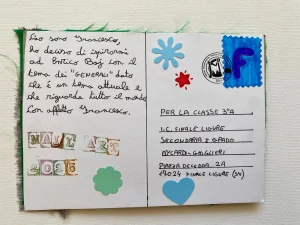 Io sono Francesco,
ho deciso di ispirarmi
ad Enrico Baj con il
tema dei "GENERALI" dato
che è un tema attuale e
che riguarda tutto il mondo.
Con affetto Francesco.
MAIL ART
2025
F
PER LA CLASSE 3ªA
I.C. FINALE LIGURE
SECONDARIA I GRADO
AYCARDI-GHIGLIERI
PIAZZA 2A
17024 FINALE LIGURE (SV)